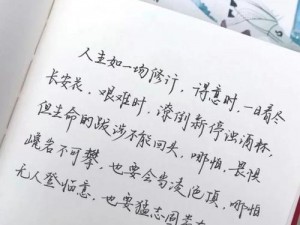 人生如一场修行，得意时，一日看尽
长安花，艰难时，潦倒新停浊酒杯，
但生命的跋涉不能回头，哪怕，畏惧
巉岩不可攀，也要会当凌绝顶，哪怕
无人登临意，也要猛志固常在